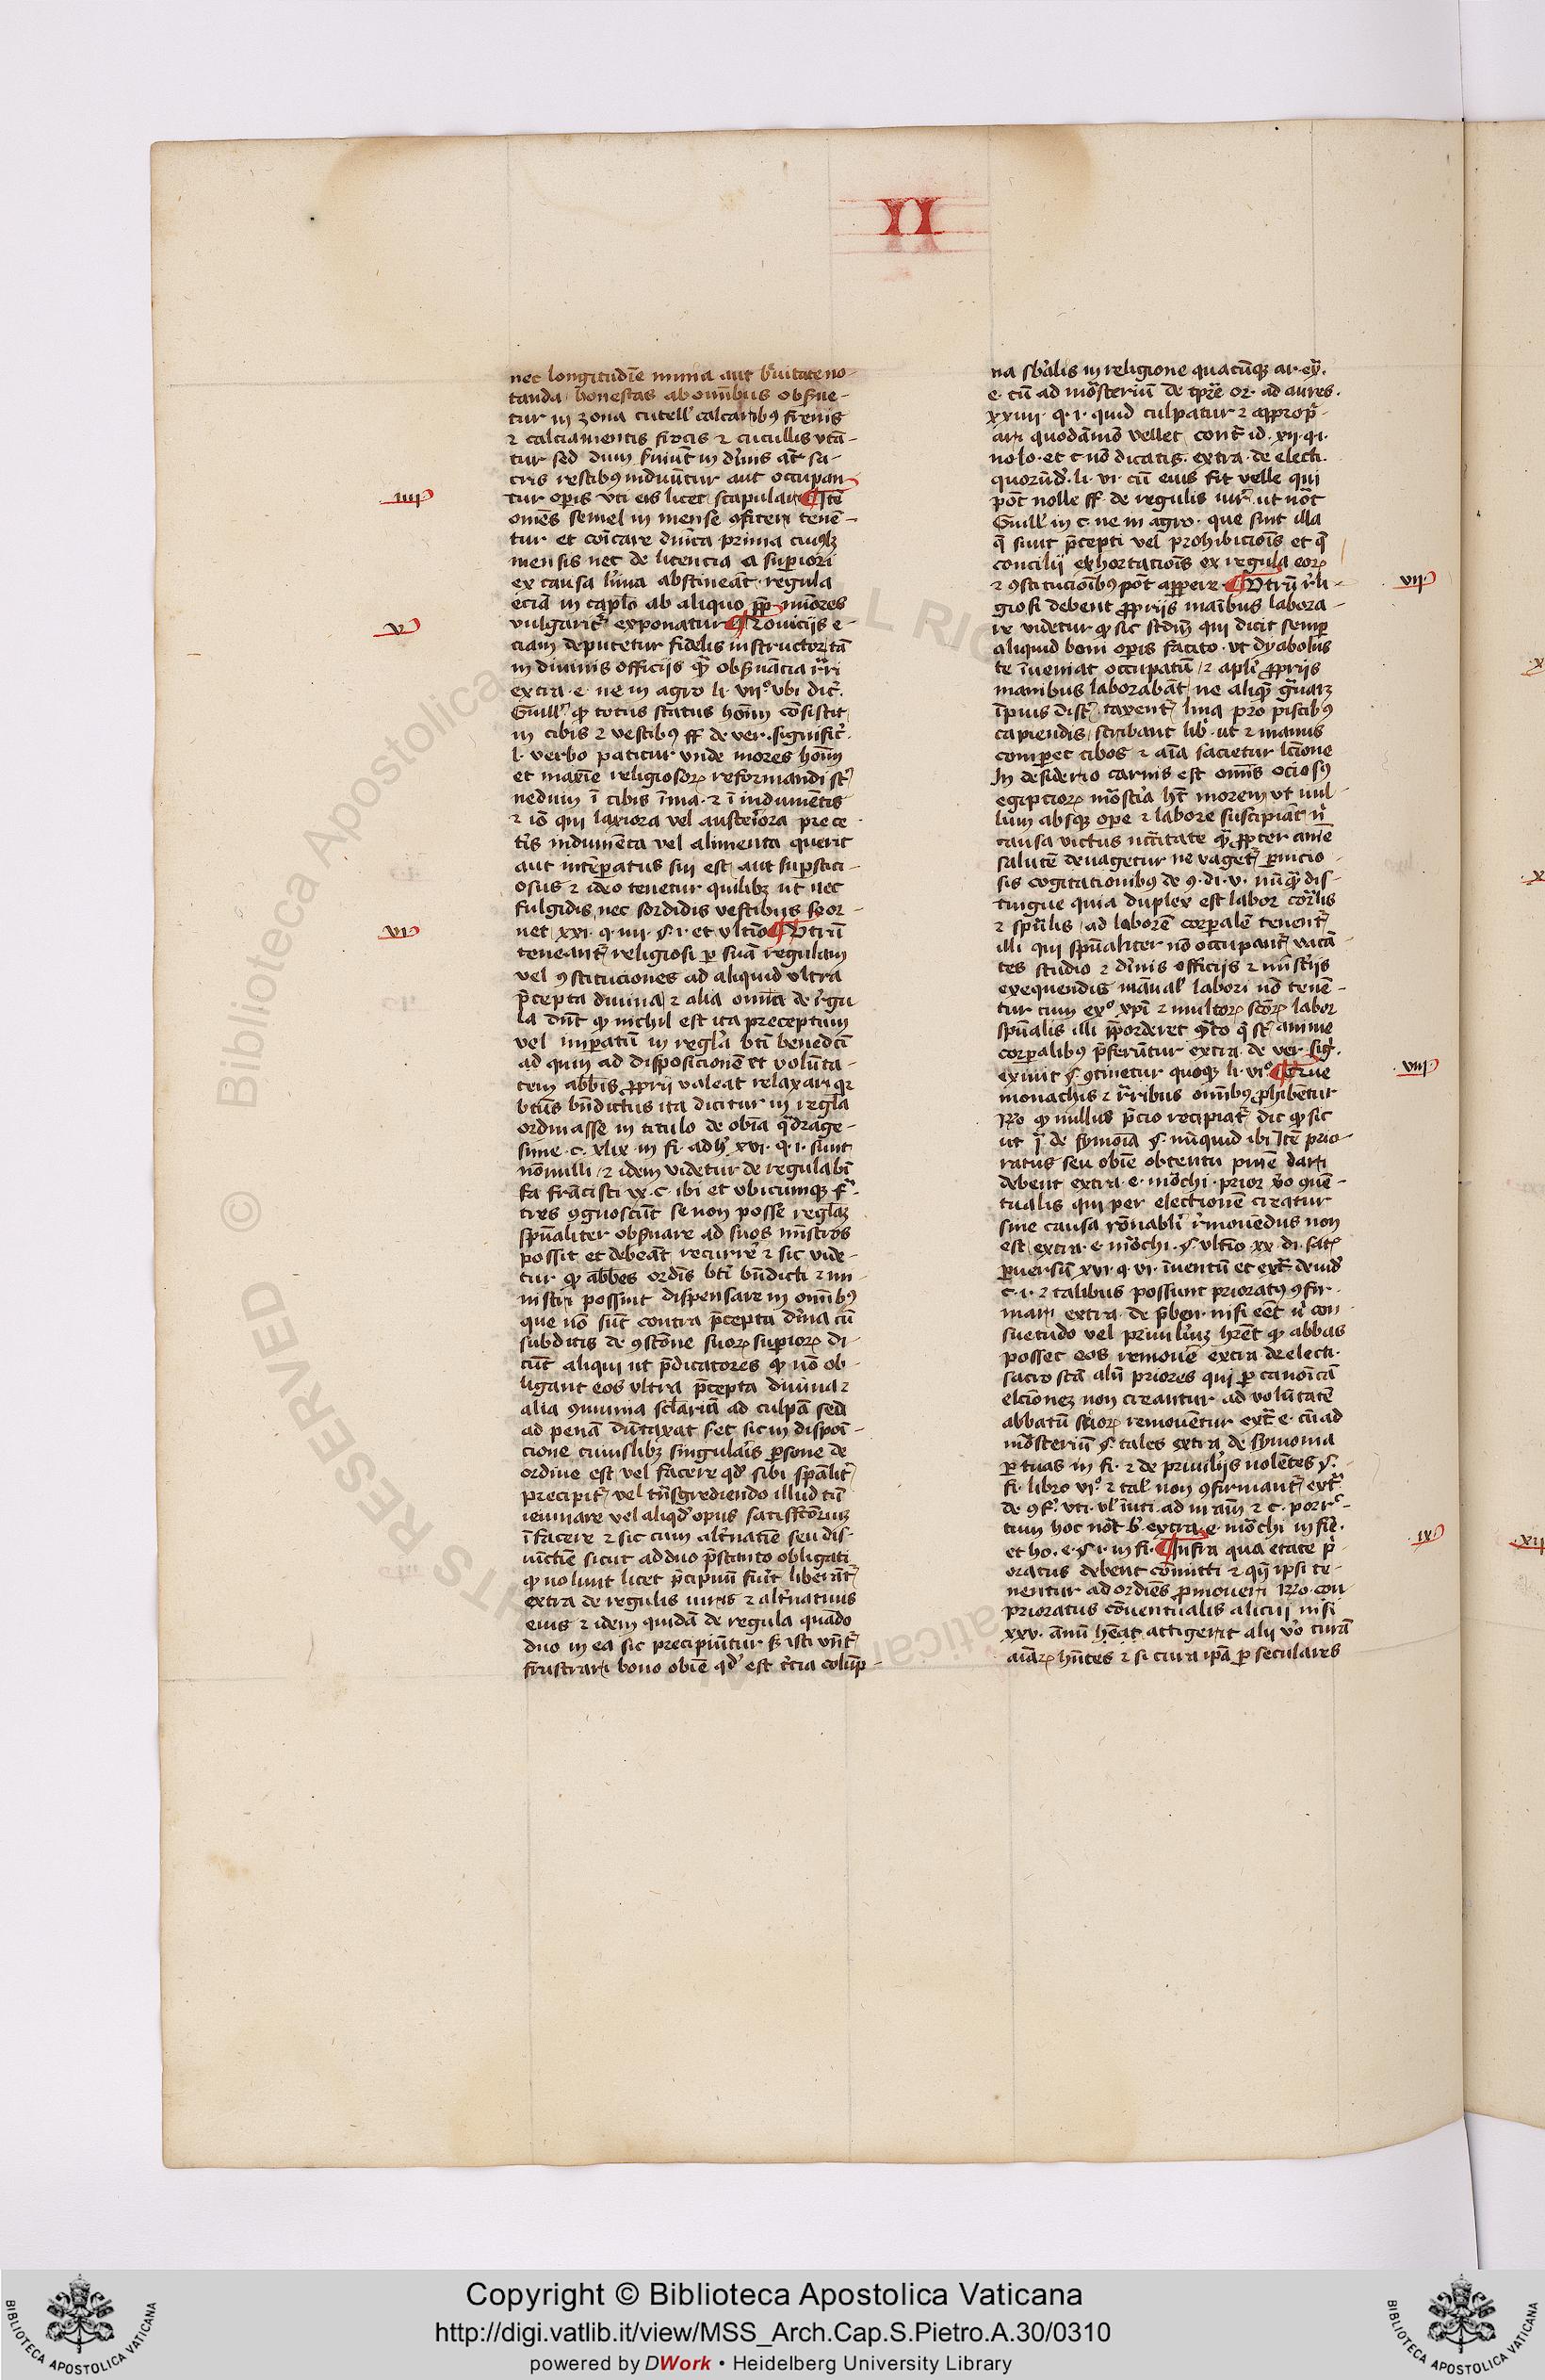 II
nec longitudīe nimia aut b̉uitate no-
tanda honestas ab omībus obẜue-
tur in zona cutell' calcaribꝰ frenis
⁊ calciamentis sroccis ⁊ cucullis vtā-
tur sed dum ẜuiūt in diīnis aūt sa-
cris vestibꝰ induūtur aut occupan
tur opis vti eis licet scapulari ¶ Itē
iiii
omēs semel in mense ꝯfiteri tenē-
tur et cōīcare dnīca prima cuiꝰlꝫ
mensis nec de licencia a superiori
ex causa līma abstineāt regula
eciā in caplo ab aliquo ꝓp̄ miōres
vulgarit̉ exponatur ¶ Nouiciis e-
v
ciam deputetur fidelis instructor tā
in diuinis officijs q̄ obẜuācia r̄ri
extra · e · ne in agro li · viiº vbi dic̉
Guill' ꝙ totus status hoīm cōsistit
in cibis ⁊ vestibꝰ ff de ver · signific̉
l · verbo patitur vnde mores hoīm
et maxīe religiosoꝝ reformandi sr̄
nedum ī cibis īma · ⁊ ī indumētis
⁊ iō qui laxiora vel austeriora prece
tis indumēta vel alimenta querit
aut intēpatus sui est aut supstici-
osus ⁊ ideo tenetur quilibꝫ ut nec
fulgidis nec sordidis vestibus se or-
net xxi · q · iiii · §· i · et vltīo ¶ Vtrū
vi
teneant̉ religiosi p suā regulam
vel ꝯstituciones ad aliquid vltra
p̄cepta diuina ⁊ alia omīa de r̉gu
la dn̄t ꝙ nichil est ita preceptum
vel impatū in regl̉a btī benedc̄i
ad quin ad disposicionē et volūta-
tem abbīs ꝓprii valeat relaxari qꝛ
btūs bn̄dictus ita dicitur in regla
ordinasse in titulo de obīa q̄drage-
sime · c · xlix · in fi · adh̉ xvi · q · i · sunt
nōnulli ⁊ idem videtur de regula bī
frācisci ix · c · ibi et vbicumqꝫ f̄-
tres ꝯgnoscūt se non posse reglaꝫ
spūaliter obẜuare ad suos mīstros
possit et debeāt recurrē ⁊ sic vide-
tur ꝙ abbēs ordīs btī bn̄dicti ⁊ mi-
nistri possint dispensare in omībꝰ
que nō sūt contra p̄cepta diīna cū
subditis de ꝯstōne suoꝝ supioꝝ di-
cūt aliqui ut p̄dicatores ꝙ nō ob-
ligant eos vltra p̄cepta diuina ⁊
alia ꝯmunia sclariā ad culpā sed
ad penā dūtaxat sec̄ sic in disposi-
cione cuiuslibꝫ singularis psone de
ordine est vel facere qd' sibi spālit̉
precipit̉ vel tn̄sgrediendo illud tū
ieiunare vel aliqd' opus satisfc̄oriuꝫ
ī facere ⁊ sic cum alt̉natīe seu dis-
iūctīe sicut ad duo p̄stanto obligati
ꝙ nolunt licet p̄cipuū fuīt liberāt̉
extra de regulis iuris ⁊ alt̉natiuis
eius ⁊ idem quidā de regula quādo
duo in ea sic precipiūtur ẜ isti vn̄t̉
frustrari bono obīe qd' est t̉cia colūp-
na sb̄alis in religione quacūqꝫ ar · ex̉
e · cū ad mōsterium de tpr̄e or · ad aures ·
xxiiii · q · i · quid culpatur ⁊ appropr̉-
ari quodāmō vellet cont̉ id · xii · q · i ·
nolo · et c · nō dicatis · extra · de electi ·
quorūd' · li · vi · cū eius sit velle qui
pōt nolle ff · de regulis iur̉ · ut nōt
Guill' in c · ne in agro · que sint illa
q̄ sunt p̄cepti vel prohibicioīs et q̄
concilij exhortacioīs ex regula eoꝝ
⁊ ꝯstitucioībꝰ pōt appere ¶ Vtrū r̉li-
vii
giosi debent ꝓpriis maībus labora-
re videtur ꝙ sic scd̄m qui dicit semp
aliquid boni opis facito · vt dyabolus
te īueniat occupatū ⁊ apli ꝓpriis
manibus laborabāt ne aliqꝫ grauarꝫ
īpius dist̉ taxent̉ lina pro piscibꝰ
capiendis scribant lib̉ · ut ⁊ manus
compet cibos ⁊ aīa sacietur lc̄ione
In desiderio carnis est omīs ociosꝰ
egipcioꝝ mōstīa hr̄t morem vt nul-
lum absqꝫ ope ⁊ labore suscipiāt n̄
causa victus nc̄citate q̄ ꝓpter anīe
salutē deuagetur ne vaget̉ pnicio-
sis cogitationibꝰ de ꝯ · di · v · nūq̄ dis-
tingue quia duplex est labor corꝑalis
⁊ spūalis · ad laborē corpalē tenent̉
illi qui spūaliter nō occupant̉ vacā-
tes studio ⁊ diīnis officijs ⁊ mīstijs
exequendis manual' labori nō tenē-
tur cum exº xpī ⁊ multoꝝ scōꝝ labor
spūalis illi p̄ponderet q̄to q̄ st̄ anime
corpalibꝰ p̄ferūtur extra · de ver · sig̉ ·
exiuit § ꝯtinetur quoqꝫ li · viº ¶ Siue
viii
monachis ⁊ fr̄ribus omībꝰ ꝓhibētur
Rō ꝙ nullus p̄cio recipiat̉ dic ꝙ sic
ut j̄ de symoīa § nūquid ibi Itē prio-
ratus seu obīe obtentu pmē dari
debent extra · e · mōchi · prior v̉o ꝯuē-
tualis qui per electionē creatur
sine causa rōnabli r̉mouēdus non
est extra · e · mōchi · § vltīo xx · di · satꝭ
puersū xvi · q · vi · īuentū et ext̉ deuid'
c · i · ⁊ talibus possunt prioratꝰ ꝯfir-
mari extra · de p̄ben · nisi eēt ī con-
suetudo vel priuil'iuꝫ hr̄et ꝙ abbas
posset eos remouē extra de electi ·
sacro sctā alij priores qui p canoīcā
elc̄ionez non creantur ad volūtatē
abbatū suoꝝ remouētur ext̉ e · cū ad
mōsteriū § tales extra de symonia
p tuas in fi · ⁊ de priuil'ijs nolētes § ·
fi · libro viº ⁊ tal' non ꝯfirmant̉ ext̉
de ꝯf̉ · vti · vl' īuti · ad nr̄am ⁊ c · porrc̉-
tum hoc nōt b' extra · e · mōchi in fīe ·
et ho · e · § · i · in fi · ¶ Infra qua etate p-
ix
oratus debent cōmitti ⁊ qn̄ ipsi te-
nentur ad ordīes pmoueri Rō · con
prioratus cōuentualis alicui nisi
xxv · ānū hēat attigerit alij v̉o curā
aīaꝝ hn̄tes ⁊ si cura ip̄a p seculares
Copyright © Biblioteca Apostolica Vaticana
http://digi.vatlib.it/view/MSS_Arch.Cap.S.Pietro.A.30/0310
powered by DWork • Heidelberg University Library
BIBLIOTECA APOSTOLICA VATICANA
BIBLIOTECA APOSTOLICA VATICANA